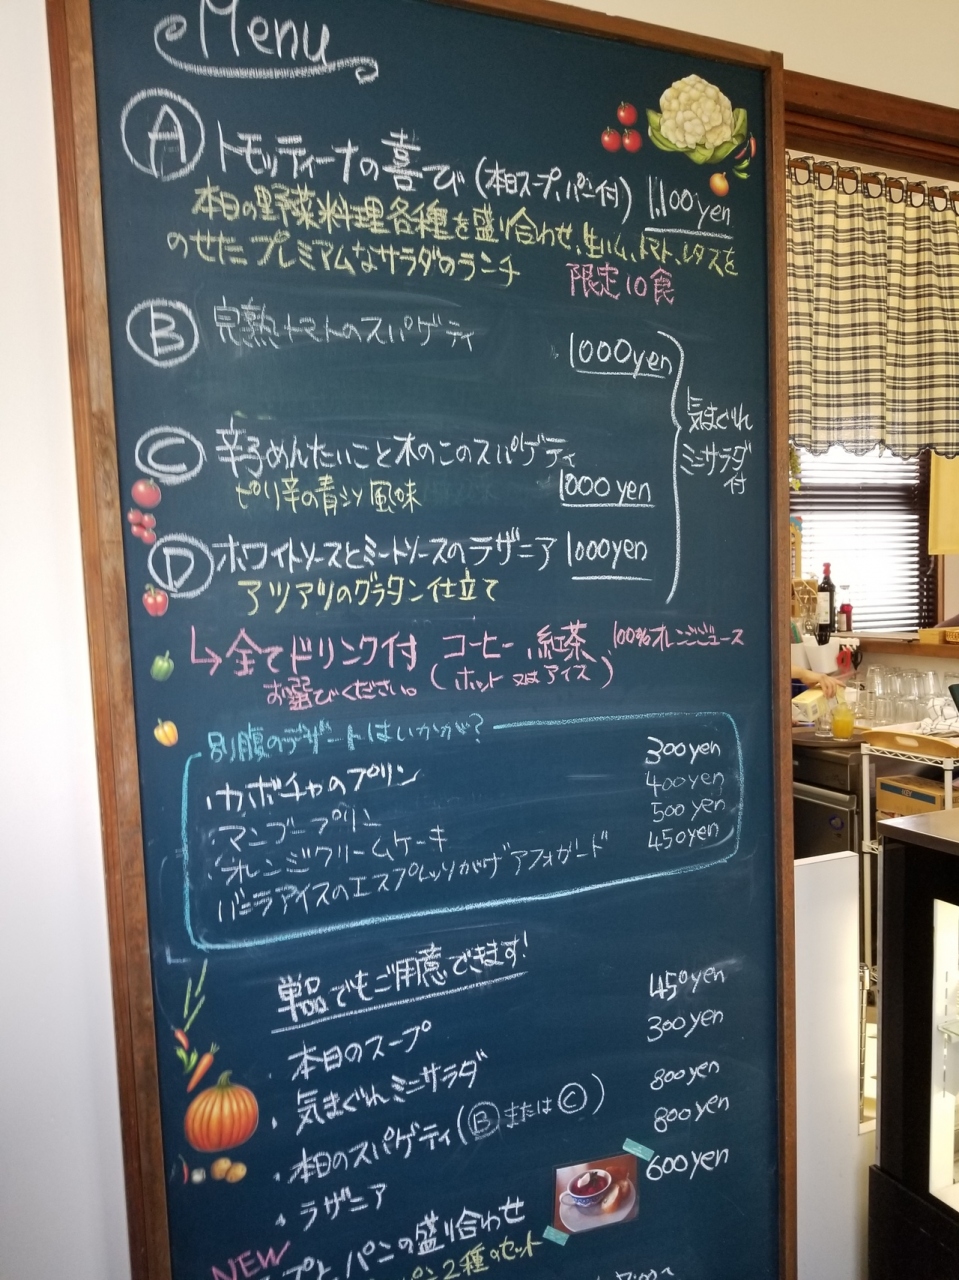 Menu
A トモッティーナの喜び (本日スープ、パン付) 1,100yen
本日の野菜料理各種を盛り合わせ、生ハム、トマト、レタスを
のせたプレミアムなサラダのランチ
限定10食
B 完熟トマトのスパゲティ 1000yen
C 辛子めんたいこと木のこのスパゲティ
ピリ辛の青シソ風味 1000yen
D ホワイトソースとミートソースのラザニア 1000yen
アツアツのグラタン仕立て
気まぐれ
ミニサラダ
付
↳全てドリンク付 コーヒー、紅茶、100%オレンジジュース
お選びください。(ホット 又は アイス)
別腹のデザートはいかがが?
・カボチャのプリン 300yen
・マンゴープリン 400yen
・オレンジクリームケーキ 500yen
・バニラアイスのエスプレッソがけ アフォガード 450yen
単品でもご用意できます!
・本日のスープ 450yen
・気まぐれミニサラダ 300yen
・本日のスパゲティ(BまたはC) 800yen
・ラザニア 800yen
NEW
プと、パンの盛り合わせ 600yen
パン2種のセット